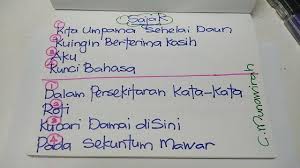 Sajak
Kita Umpama Sehelai Daun
Kuingin Berterima Kasih
Aku
Kunci Bahasa
Dalam Persekitaran Kata-Kata
Roti
Kucari Damai diSini
Pada Sekuntum Mawar
C. Munawirah